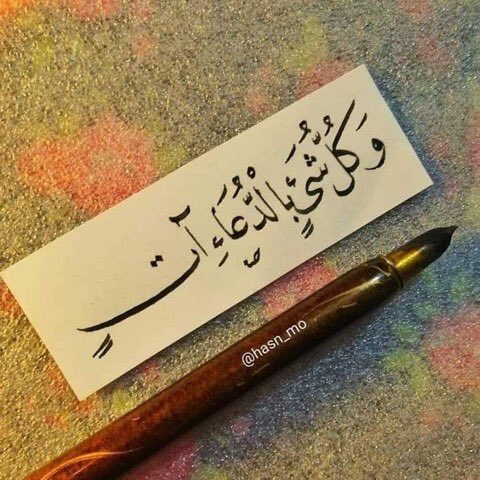 وَكُلُّ شَيْءٍ بِالدُّعَاءِ آتٍ
@hasn_mo